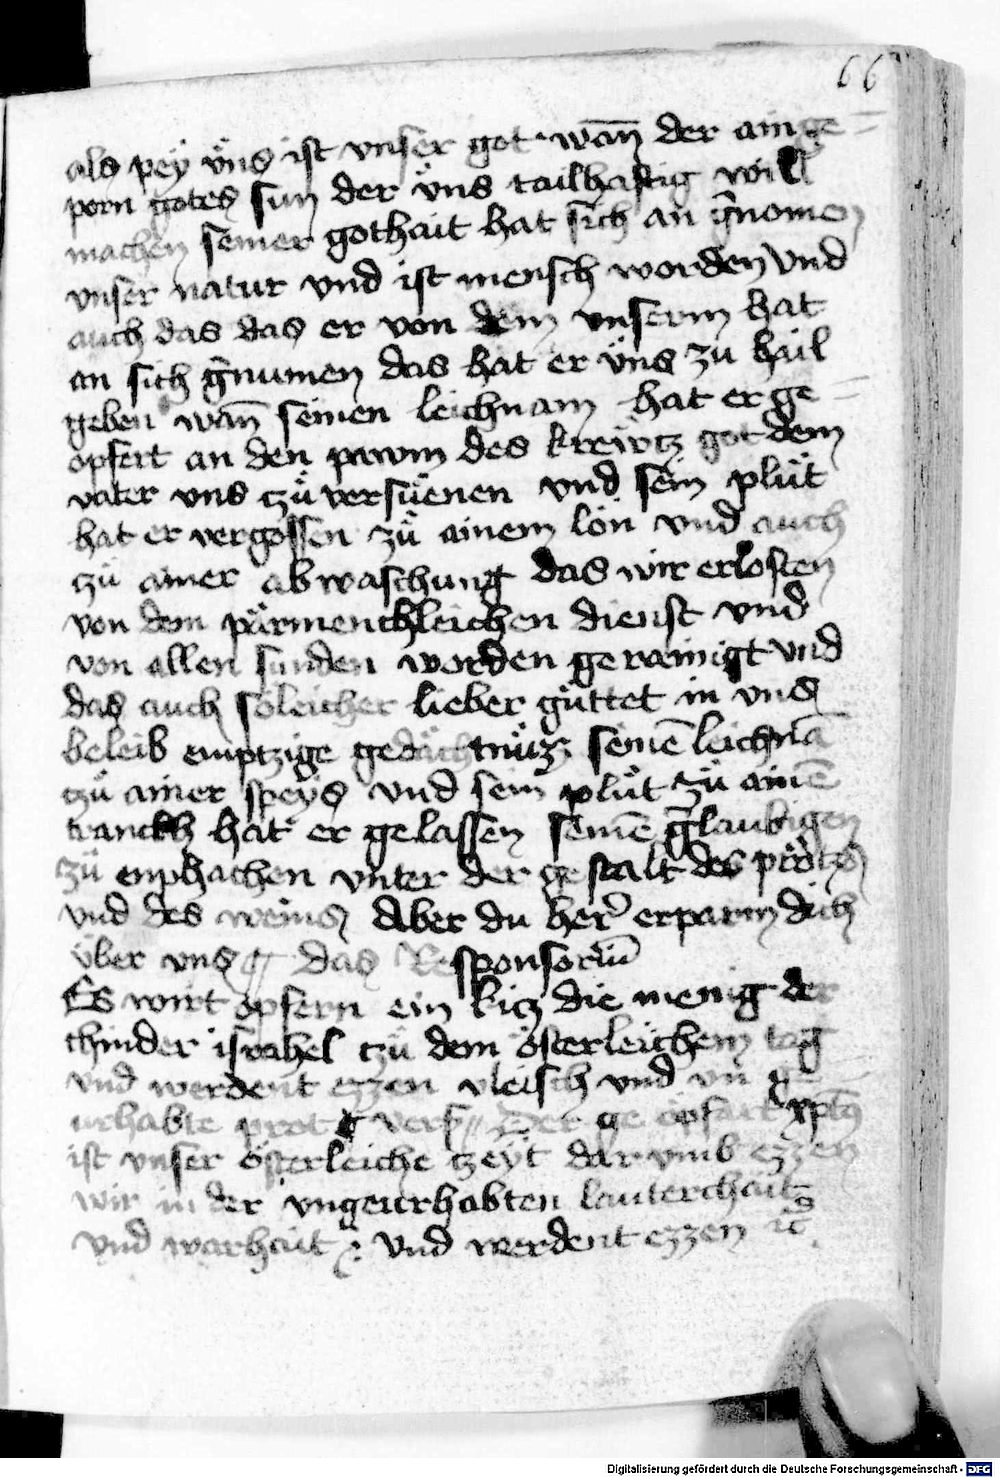 66
als peÿ v̈ns ist vnser got · wan̄ der ain ge=
porn gotes sun der v̈ns tailhaftig will
machen seiner gothait hat sich an ḡnomen
vnser natur vnd ist mensch worden vnd
auch das das er von dem vnserm hat
an sich ḡnumen das hat er v̈ns zu hail
geben wan̄ seinen leichnam hat er ge=
opfert an den pawm des krewtz got dem
vater vns czu̎ versu̎enen vnd sein plu̎t
hat er vergossen zu̎ ainem lon vnd auch
czu ainer abwaschung das wir erlosten
von dem
von allen sunden worden gerainigt vnd
das auch soleicher lieber gu̎ttet in vns
beleib emptzige gedächtnu̎zz seinē leichnā
czu̎ ainer speÿs vnd sein plu̎t zu̎ ainē
tranckh hat er gelassen seinē ḡlaubigen
zu̎ enphachen vnter der gestalt des
vnd des weins Aber du her̄ erparm dich
v̈ber vns das Responsoriū
Es wirt opfern ein kicz die menig der
chinder israhel czu̎ dem österleichem tag
vnd werdent ezzen vleisch vnd vn ge=
urhabts prot vers Der ge opfart xp̄us
ist vnser österleiche czeÿt dar vmb ezzen
wir in der vngeurhabten lauterchait
vnd warhait : vnd werdent ezzen
Digitalisierung gefördert durch die Deutsche Forschungsgemeinschaft - DFG